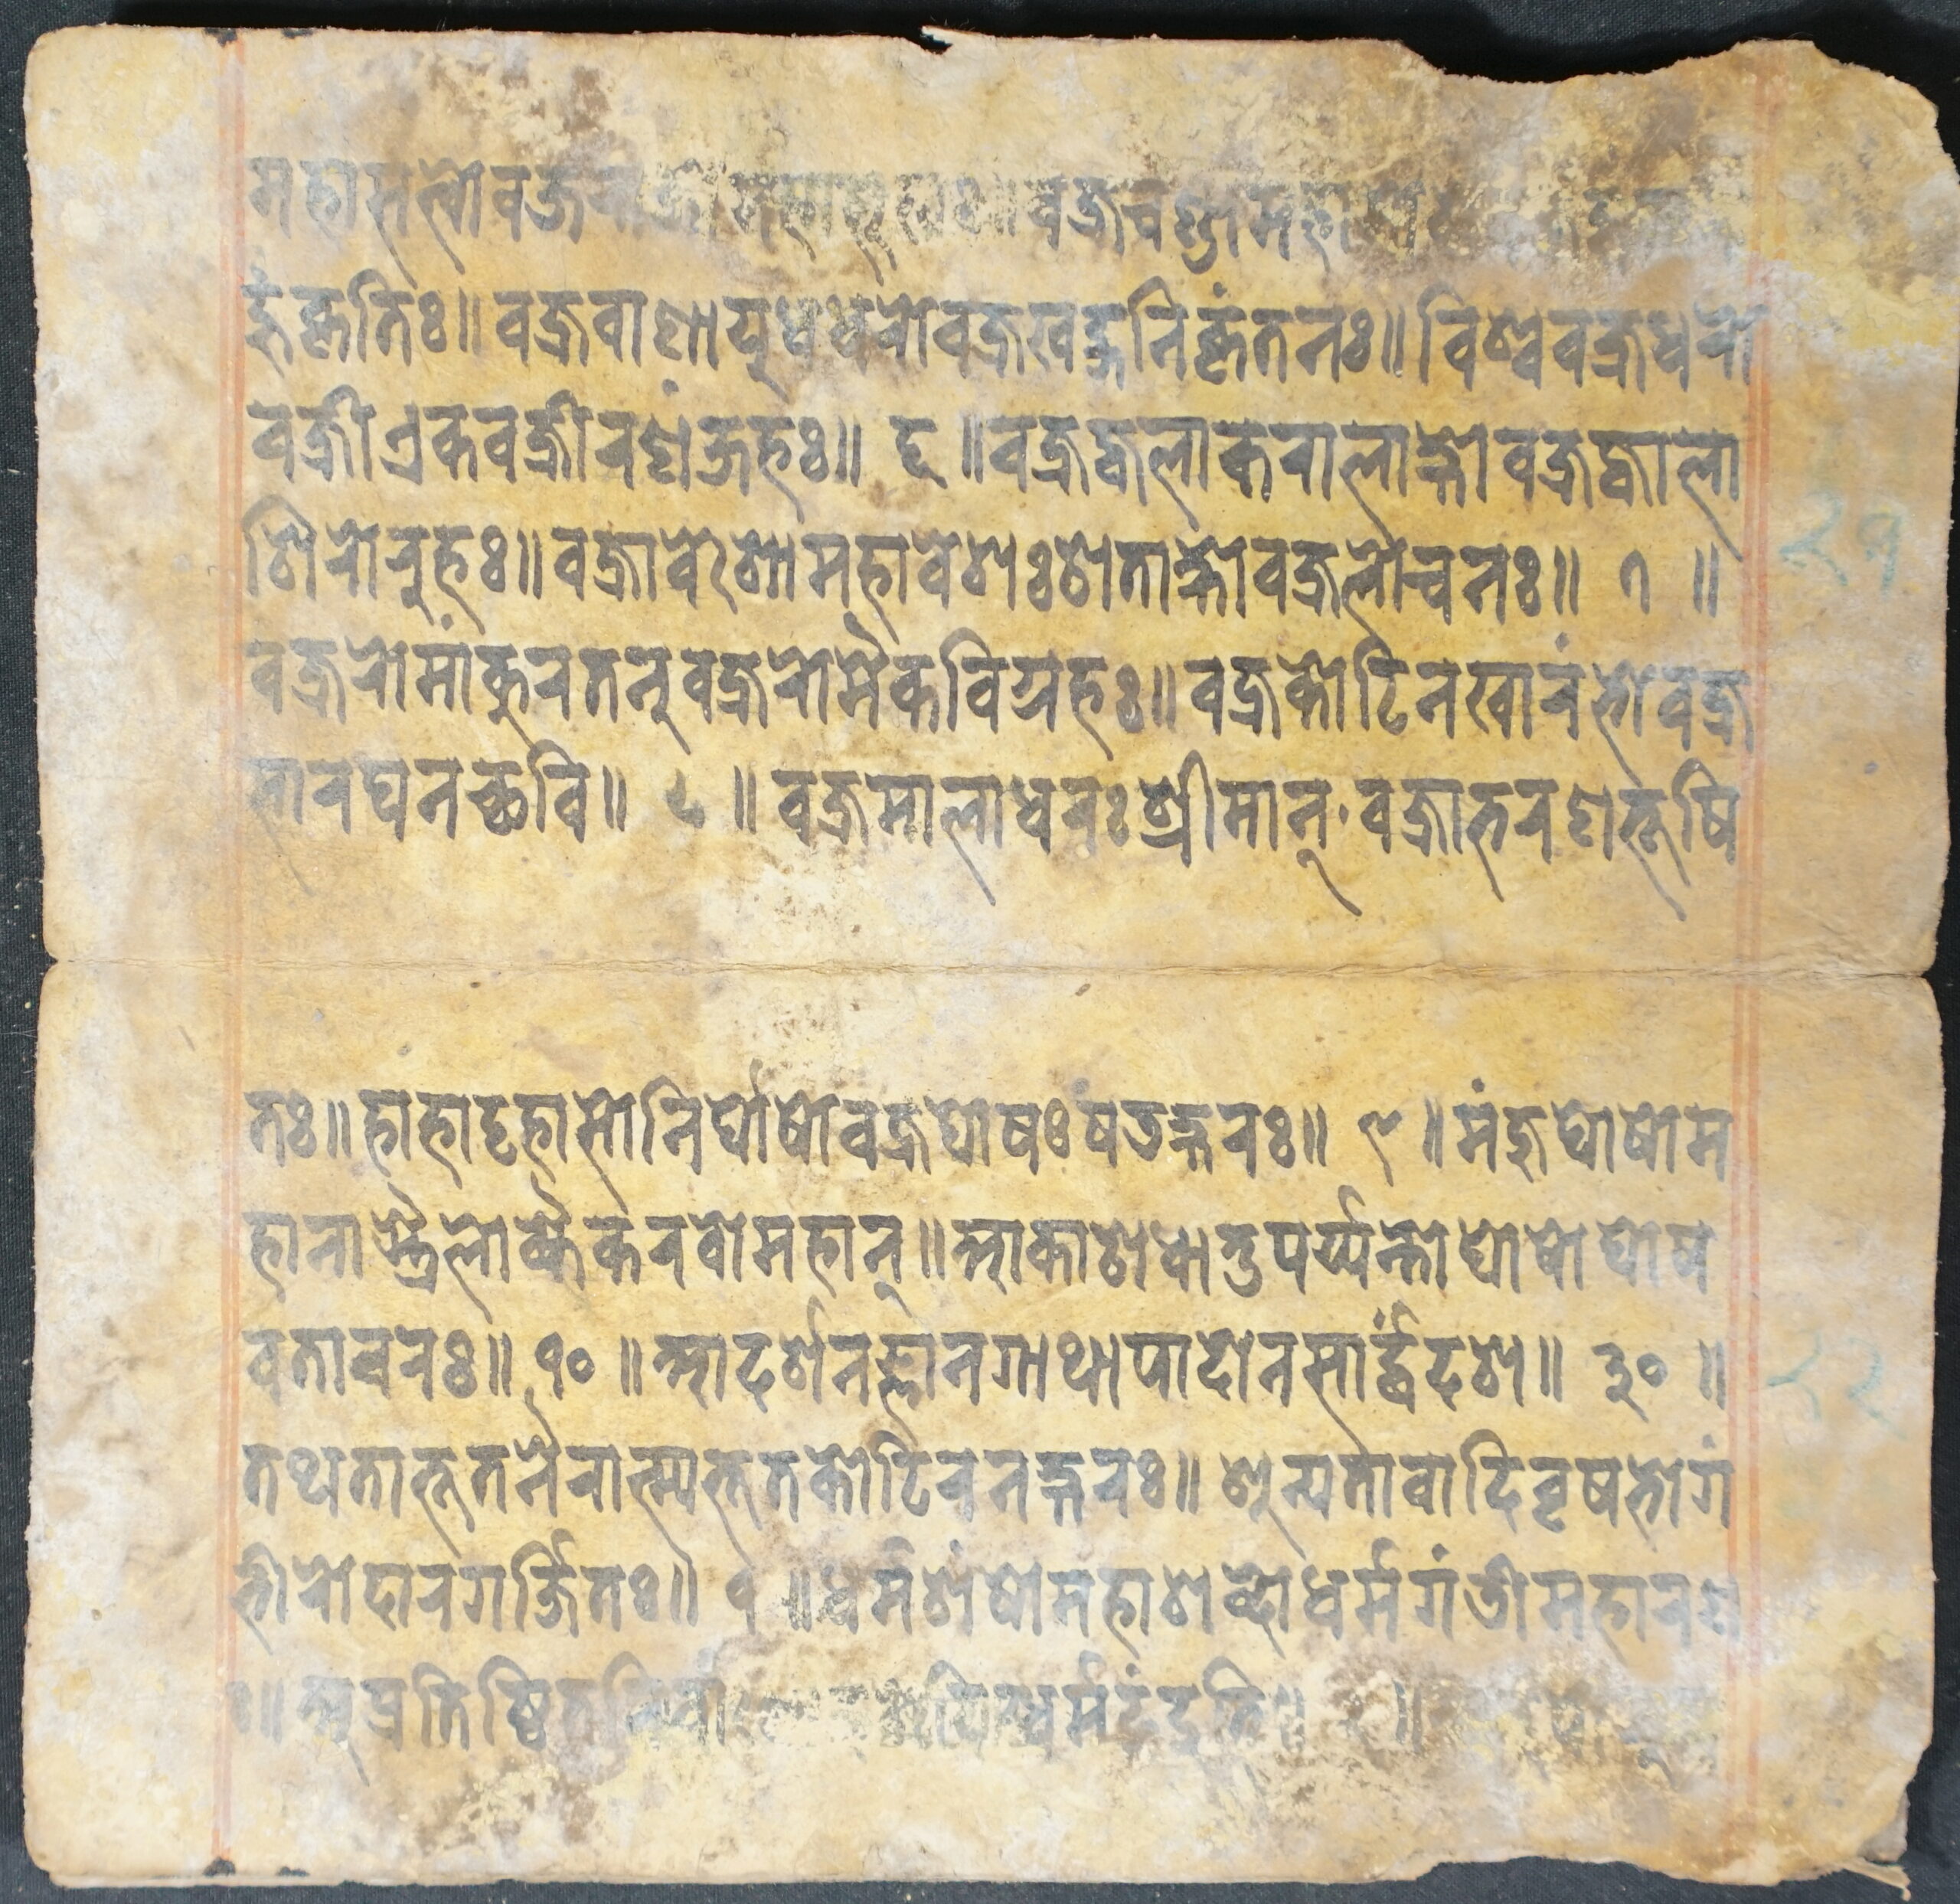 महासत्वोवज्रराजोमहासुखः॥वज्रचण्डोमहा
हुंकृतिः॥वज्रवाणायुधधरोवज्रखड्गनिकृंतनः॥विश्ववज्रधरो
वज्रीएकवज्रीरणंजहः॥ ६ ॥वज्रज्वलाकरालाक्षोवज्रज्वाला
शिरोरुहः॥वज्रावेशोमहावेशःशताक्षोवज्रलोचनः॥ ७ ॥
वज्ररोमांकुरतनुवज्ररोमैकविग्रहः॥वज्रकोटिनखारंभोवज्र
सारघनच्छवि॥ ८ ॥वज्रमालाधरःश्रीमान्वज्राभरणभूषि
तः॥हाहाट्टहासोनिर्घोषोवज्रघोषःषडक्षरः॥ ९ ॥मंजुघोषोम
हानास्त्रैलोक्यैकरवोमहान्॥आकाशधातुपर्य्यन्तोघोषोघोष
वतावरः॥ १० ॥आदर्शनज्ञानगाथापादोनसार्द्धंदश॥ ३० ॥
तथताभूतनैरात्म्यभूतकोटिरनक्षरः॥शुन्यतावादिवृषभोगं
भीरोदारगर्ज्जितः॥ १ ॥धर्मशंषोमहाशब्दोधर्मगंडीमहारण
ः॥अप्रतिष्ठितनिर्वा धर्मदुंदुभि॥ २ ॥
२१
२२